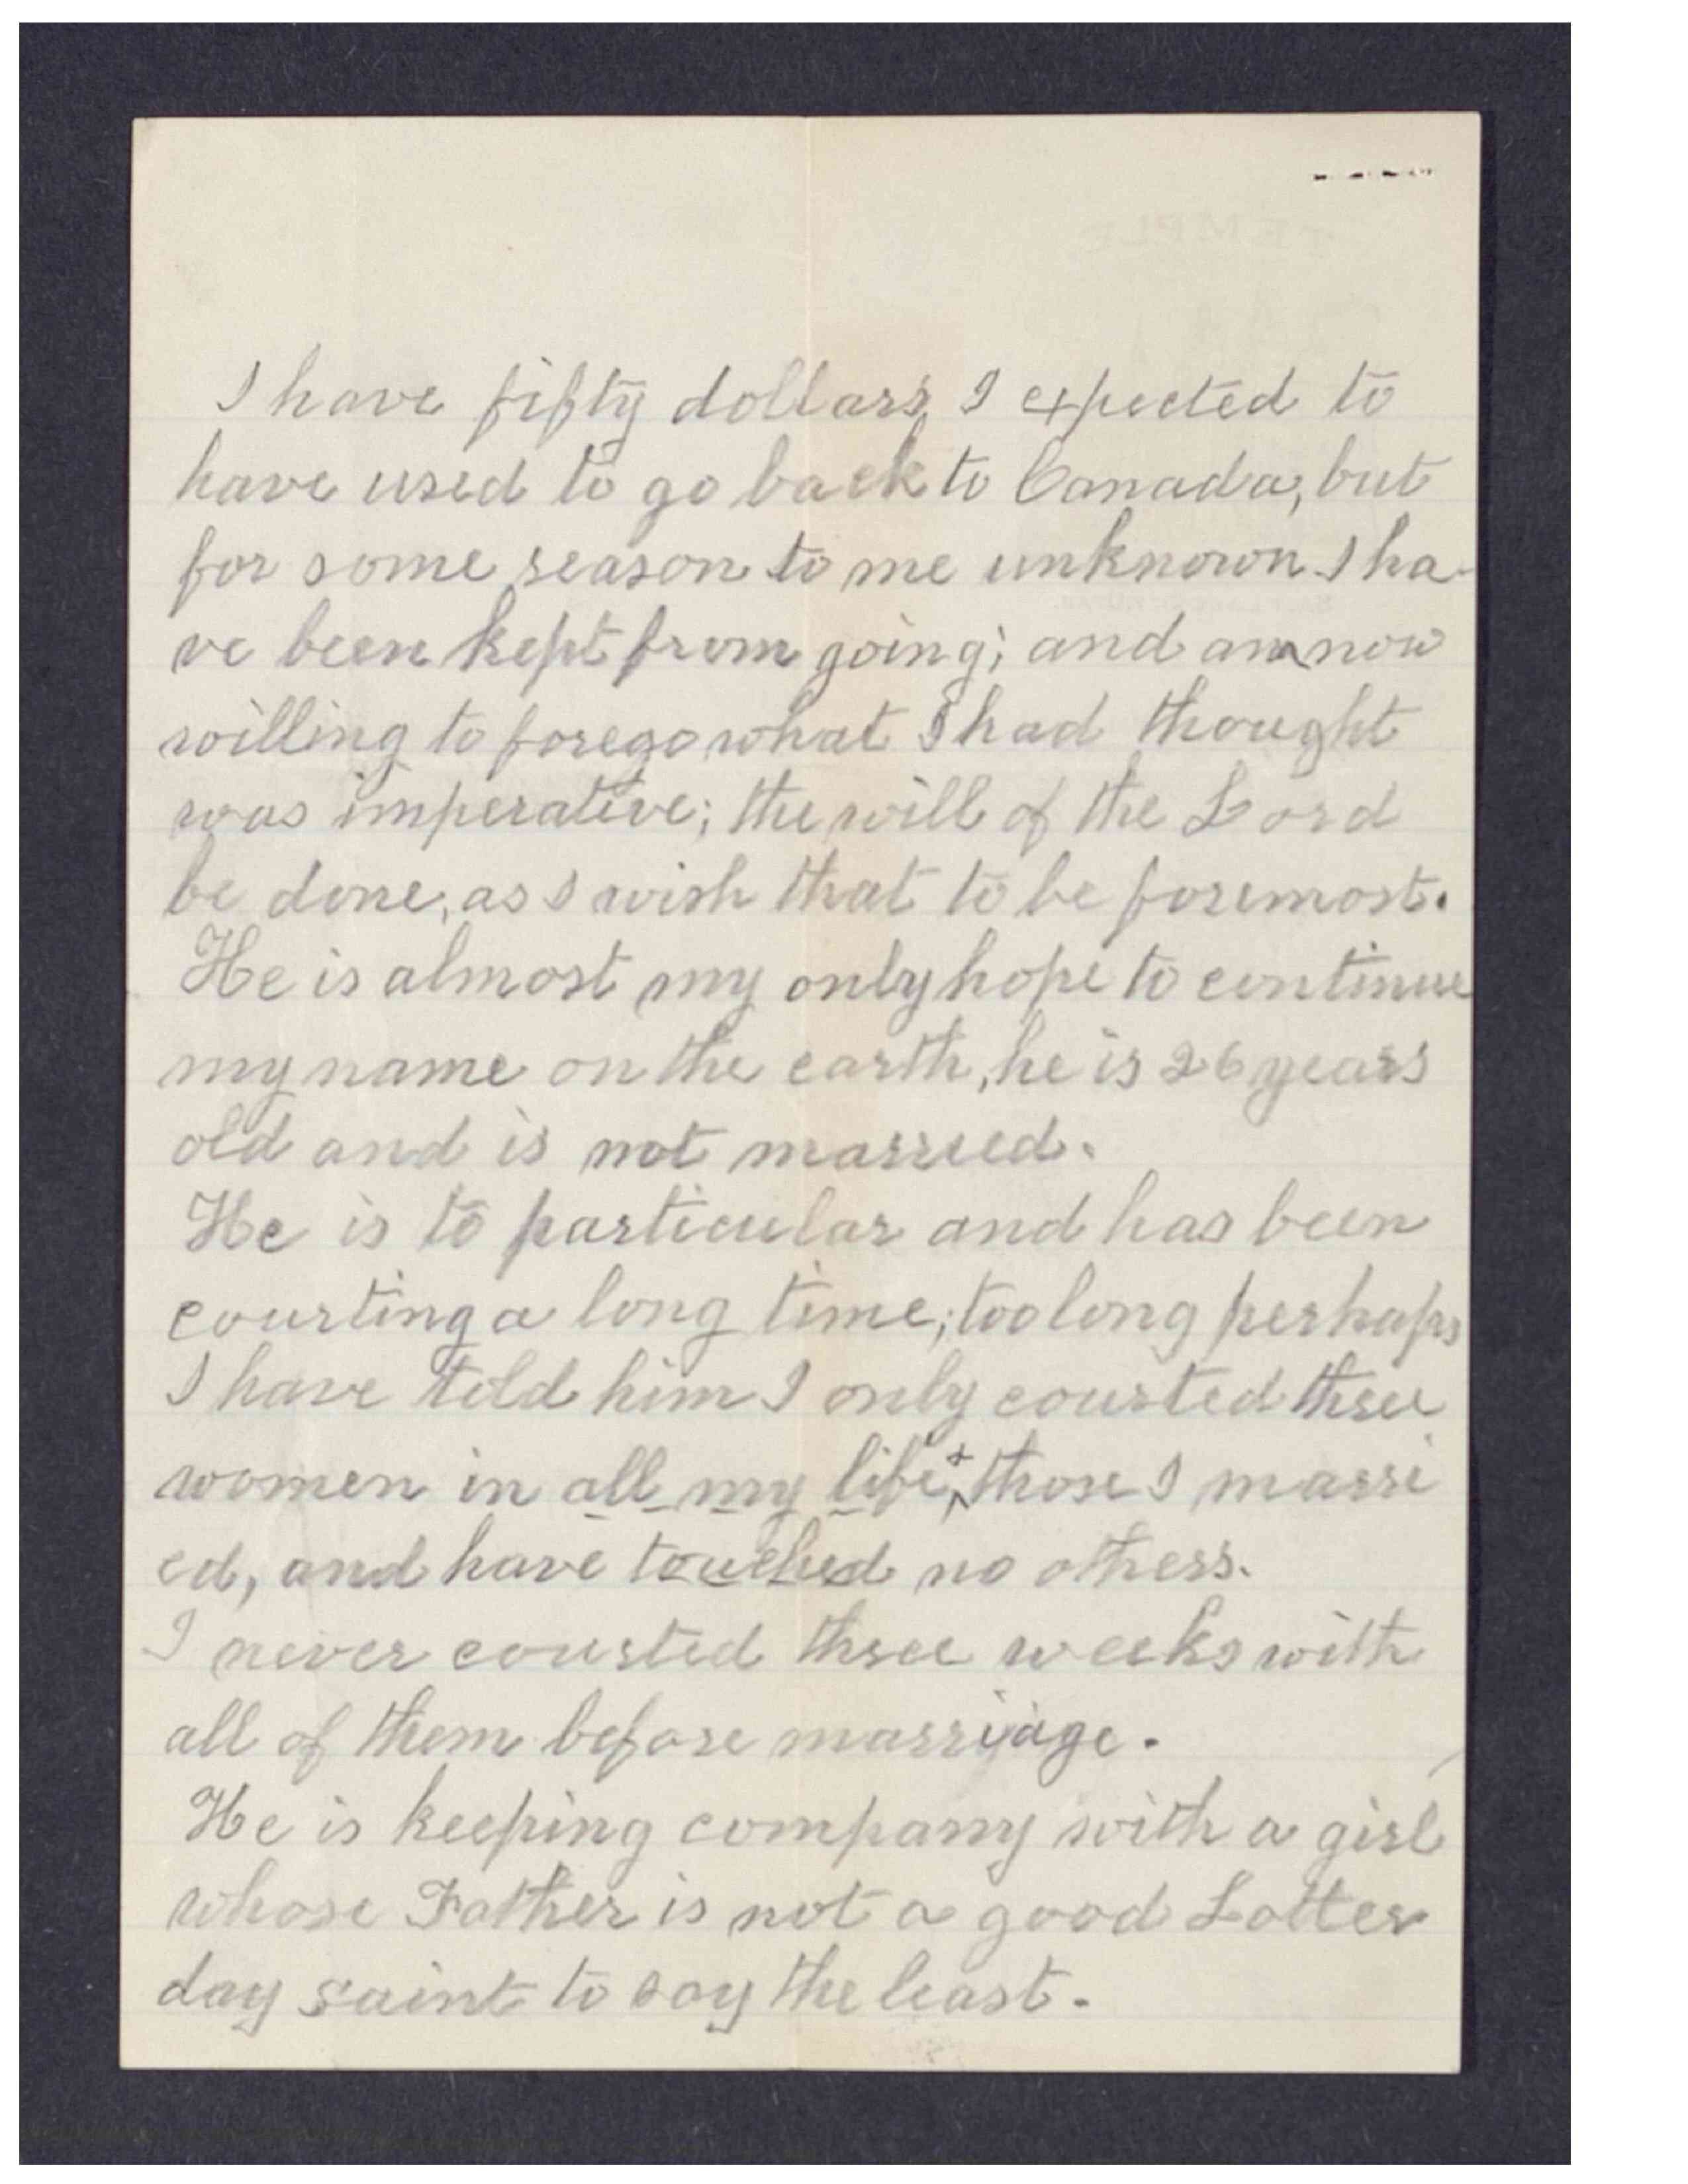 I have fifty dollars, I expected to
have used to go back to Canada, but
for some reason to me unknown I ha-
ve been kept from going; and am now
willing to forego what I had thought
was imperative; the will of the Lord
be done, as I wish that to be foremost.
He is almost my only hope to continue
my name on the earth, he is 26 years
old and is not married.
He is to particular and has been
courting a long time; too long perhaps
I have told him I only courted three
women in all my life, & those I marri
ed, and have touched no others.
I never courted three weeks with
all of them before marriage.
He is keeping company with a girl
whose Father is not a good Latter
day saint to say the least.